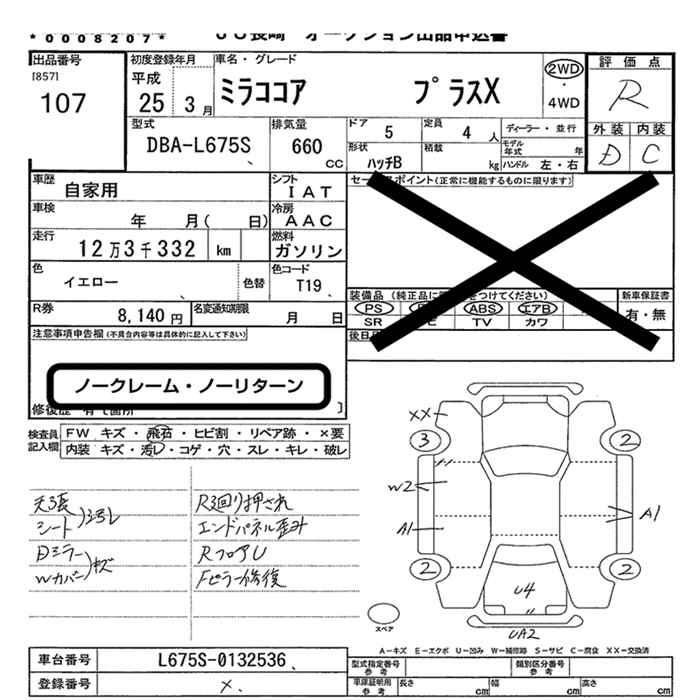 *0008207* JU長崎 オークション出品申込書
出品番号 [857] 107
初度登録年月 平成 25 3月
車名・グレード ミラココア プラスX
2WD ・ 4WD
評価点 R
外装 内装 D C
型式 DBA-L675S
排気量 660 CC
ドア 5 定員 4 人
形状 ハッチB 積載 kg
ディーラー・並行
モデル年式 年
ハンドル 左・右
車歴 自家用
シフト IAT
車検 年 月( 日)
冷房 AAC
走行 12万3千332 km
燃料 ガソリン
色 イエロー 色替
色コード T19
R券 8,140円
名変通知期限 月 日
セールスポイント(正常に機能するものに限ります)
装備品 (純正品に つけてください)
PS ABS エアB
SR TV カワ
新車保証書 有・無
後日
注意事項申告欄 (不具合内容等は具体的に記入して下さい)
ノークレーム・ノーリターン
修復歴 有て箇所 ]
検査員記入欄
FW キズ・飛石・ヒビ割・リペア跡・×要
内装 キズ・汚レ・コゲ・穴・スレ・キレ・破レ
天張
シート
Dミラー
Wカバー キズ
R廻り押され
エンドパネル歪み
RフロアU
Fピラー修復
XX
3 2
W2
A1 A1
2 2
U4
UA2
スペア
A-キズ E-エクボ U-凹み W-補修跡 S-サビ C-腐食 XX-交換済
車台番号 L675S-0132536
登録番号 ×
型式指定番号 参考
類別区分番号 参考
車庫証明用 参考
長さ cm 幅 cm 高さ cm